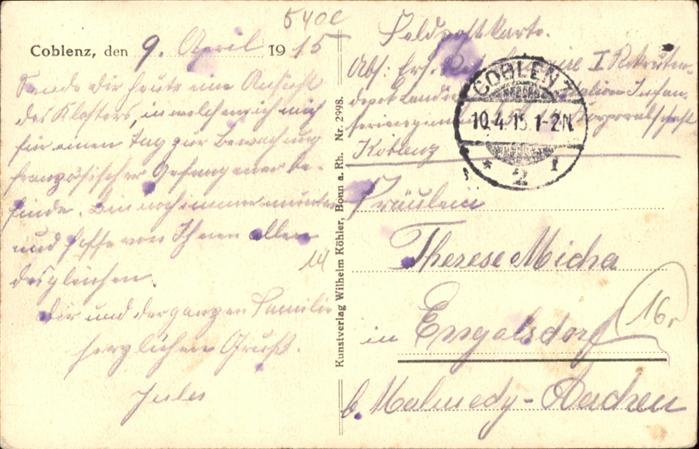 5400
Coblenz, den 9. April 1915
Sende dir heute eine Ansicht
des Klosters, in welchem ich mich
für einen Tag zur Bewachung
französischer Gefangener be-
finde. Bin noch immer munter
und hoffe von Ihnen allen
desgleichen.
Dir und der ganzen Familie
herzlichen Gruß.
Jules
14
Kunstverlag Wilhelm Köhler, Bonn a. Rh. Nr. 2998.
Feldpostkarte.
Abs: Ers. I Rekruten
depot
Korporalschaft
Koblenz
COBLENZ
10.4.15.1-2N.
* 2 1
Fräulein
Therese Micha
in Engelsdorf
b. Malmedy-Aachen
16.